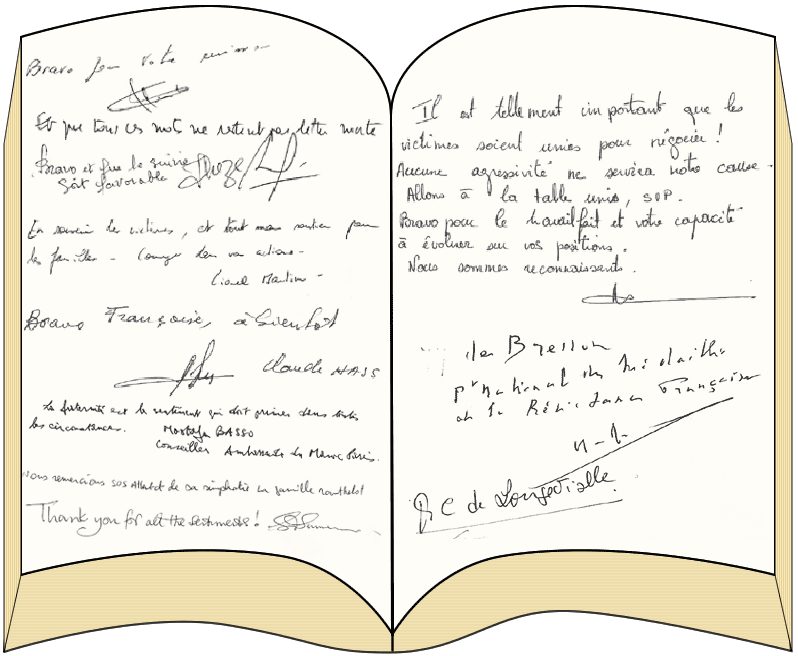 Bravo pour votre
Et que tous ces mots ne restent pas lettre morte
Bravo et que la suite
soit favorable
En souvenir des victimes, et tout mon soutien pour
les familles - Courage dans vos actions -
Lionel
Bravo Françoise, à bientôt
Claude HASS
La fraternité est le sentiment qui doit primer dans toutes
les circonstances.
Mostafa BASSO
Conseiller Ambassade du Maroc Paris.
Nous remercions SOS Attentat de sa famille
Thank you for all the !
Il est tellement important que les
victimes soient unies pour négocier !
Aucune agressivité ne servira notre cause.
Allons à la table unis, SVP.
Bravo pour le travail fait et votre capacité
à évoluer sur vos positions.
Nous sommes reconnaissants.
Bresson
national des médaillés
de la Résistance Française
de Longevialle